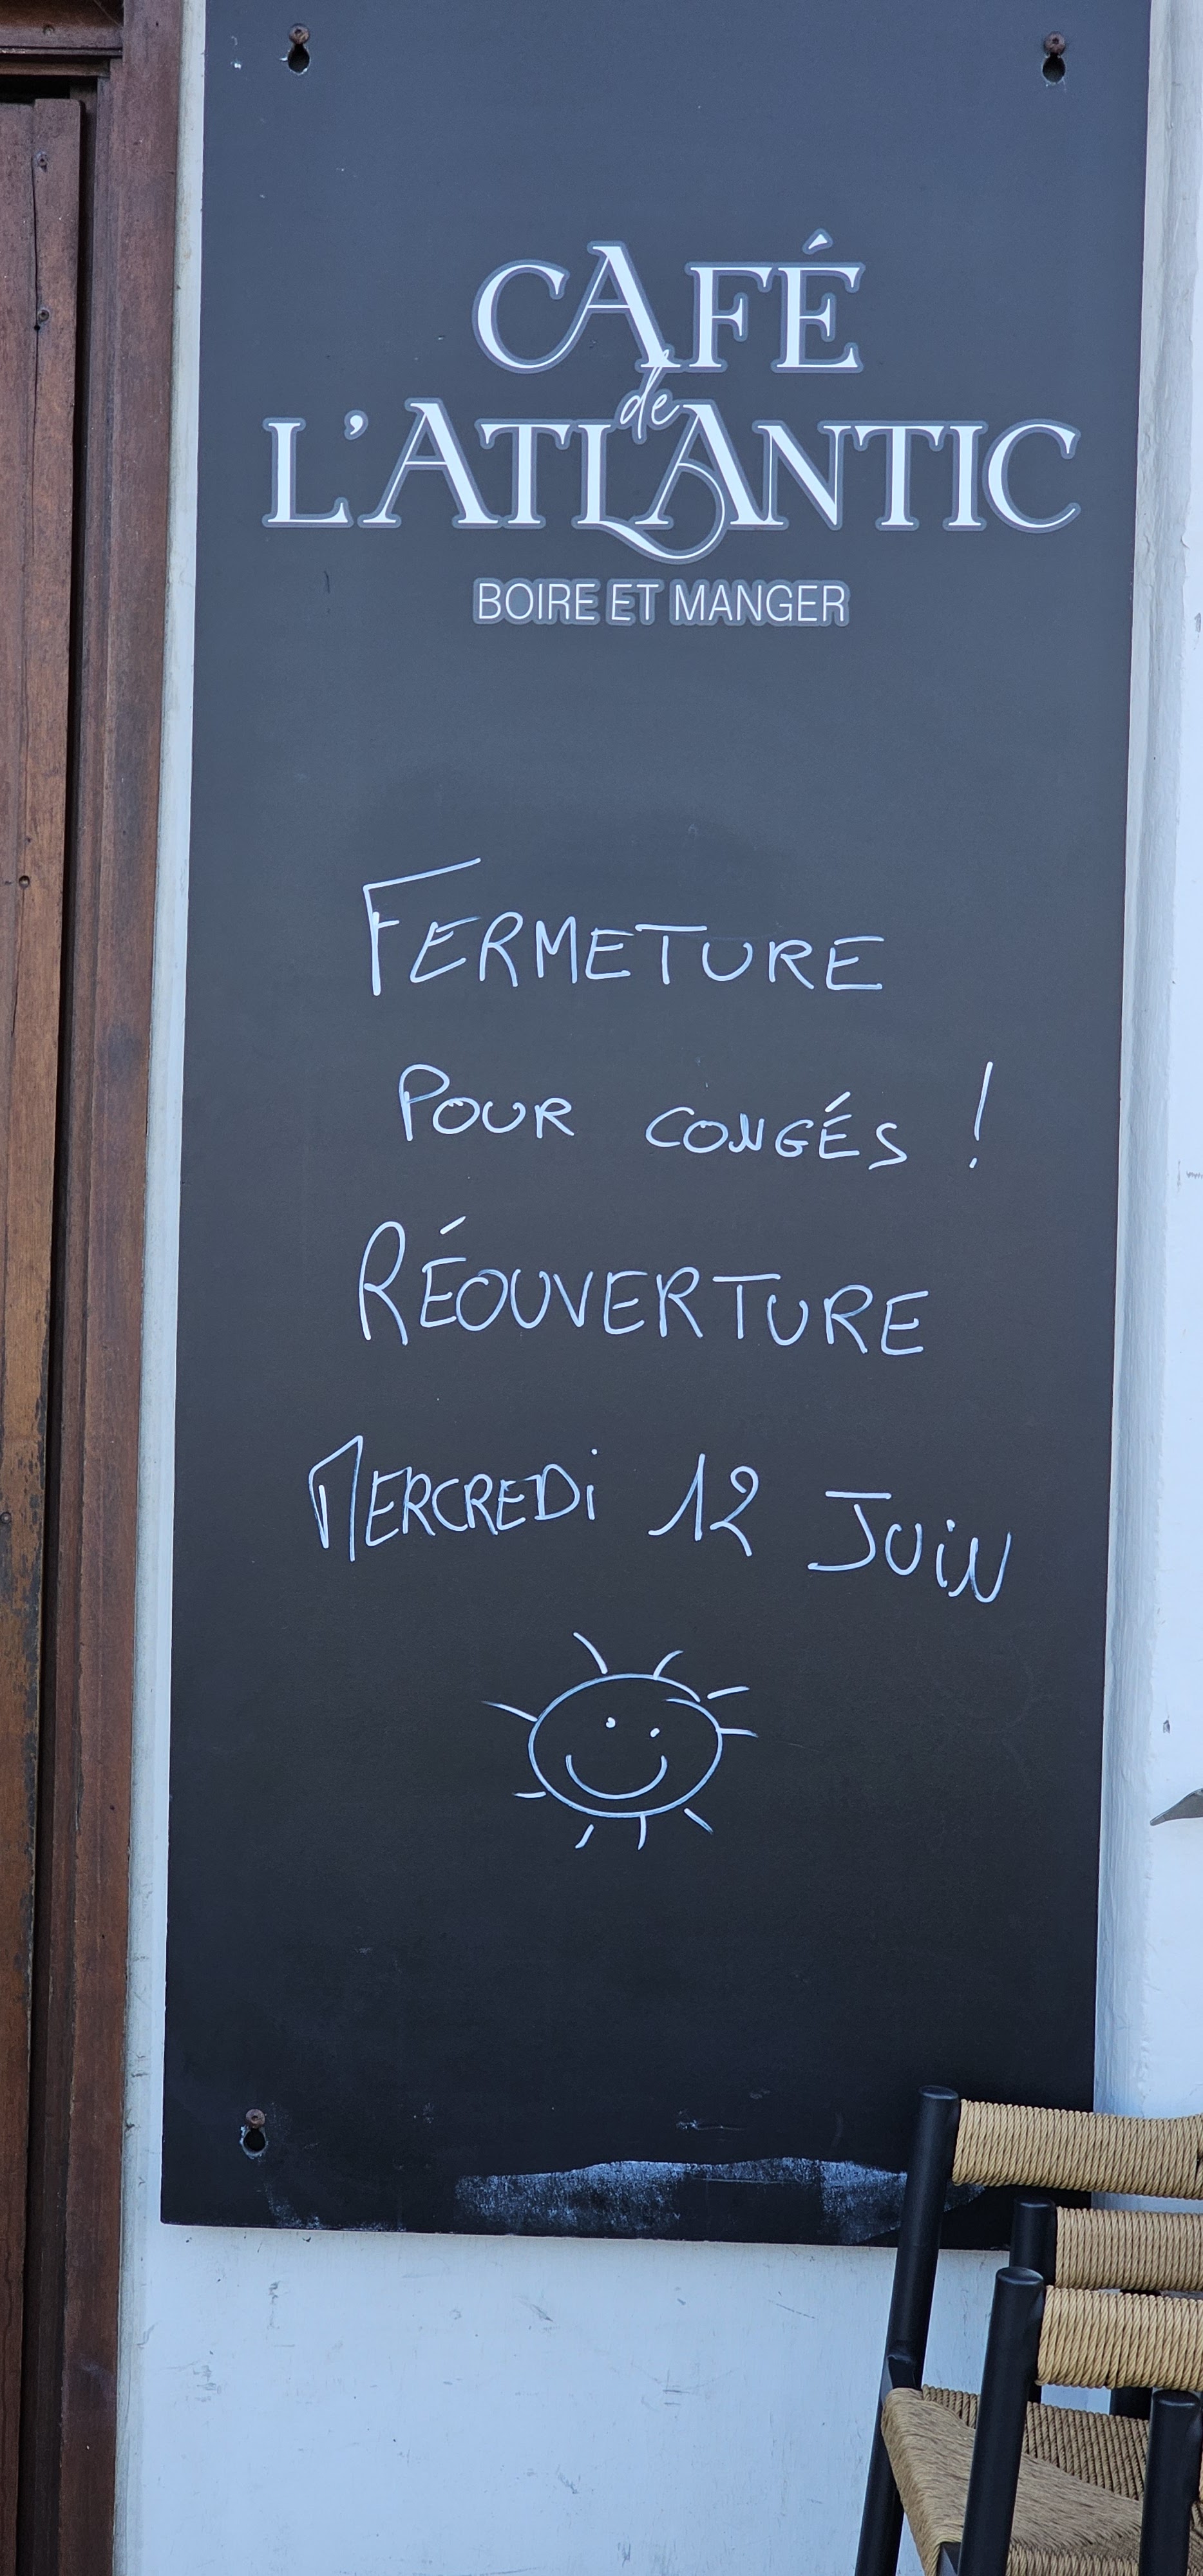 CAFÉ
de
L'ATLANTIC
BOIRE ET MANGER
FERMETURE
POUR CONGÉS !
RÉOUVERTURE
MERCREDi 12 JUiN